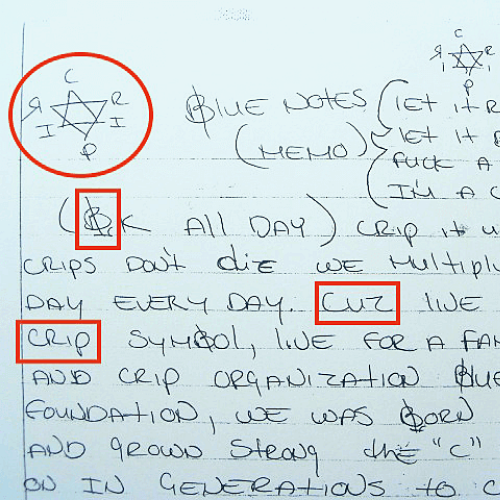 C
R R
I I
P
C
R R
I I
P
BLUE NOTES (LET it R
(MEMO) LET it B
FUCK A
I'M A C
(BK All DAY) CRIP it u
CRIPS DON'T die WE Multiply
DAY EVERY DAY. CUZ LIVE
CRIP SYMBOL, LIVE FOR A FAM
AND CRIP ORGANIZATION BLUE
FOUNDATION, WE WAS BORN
AND GROWN STRONG the "C"
ON IN GENERATIONS TO C